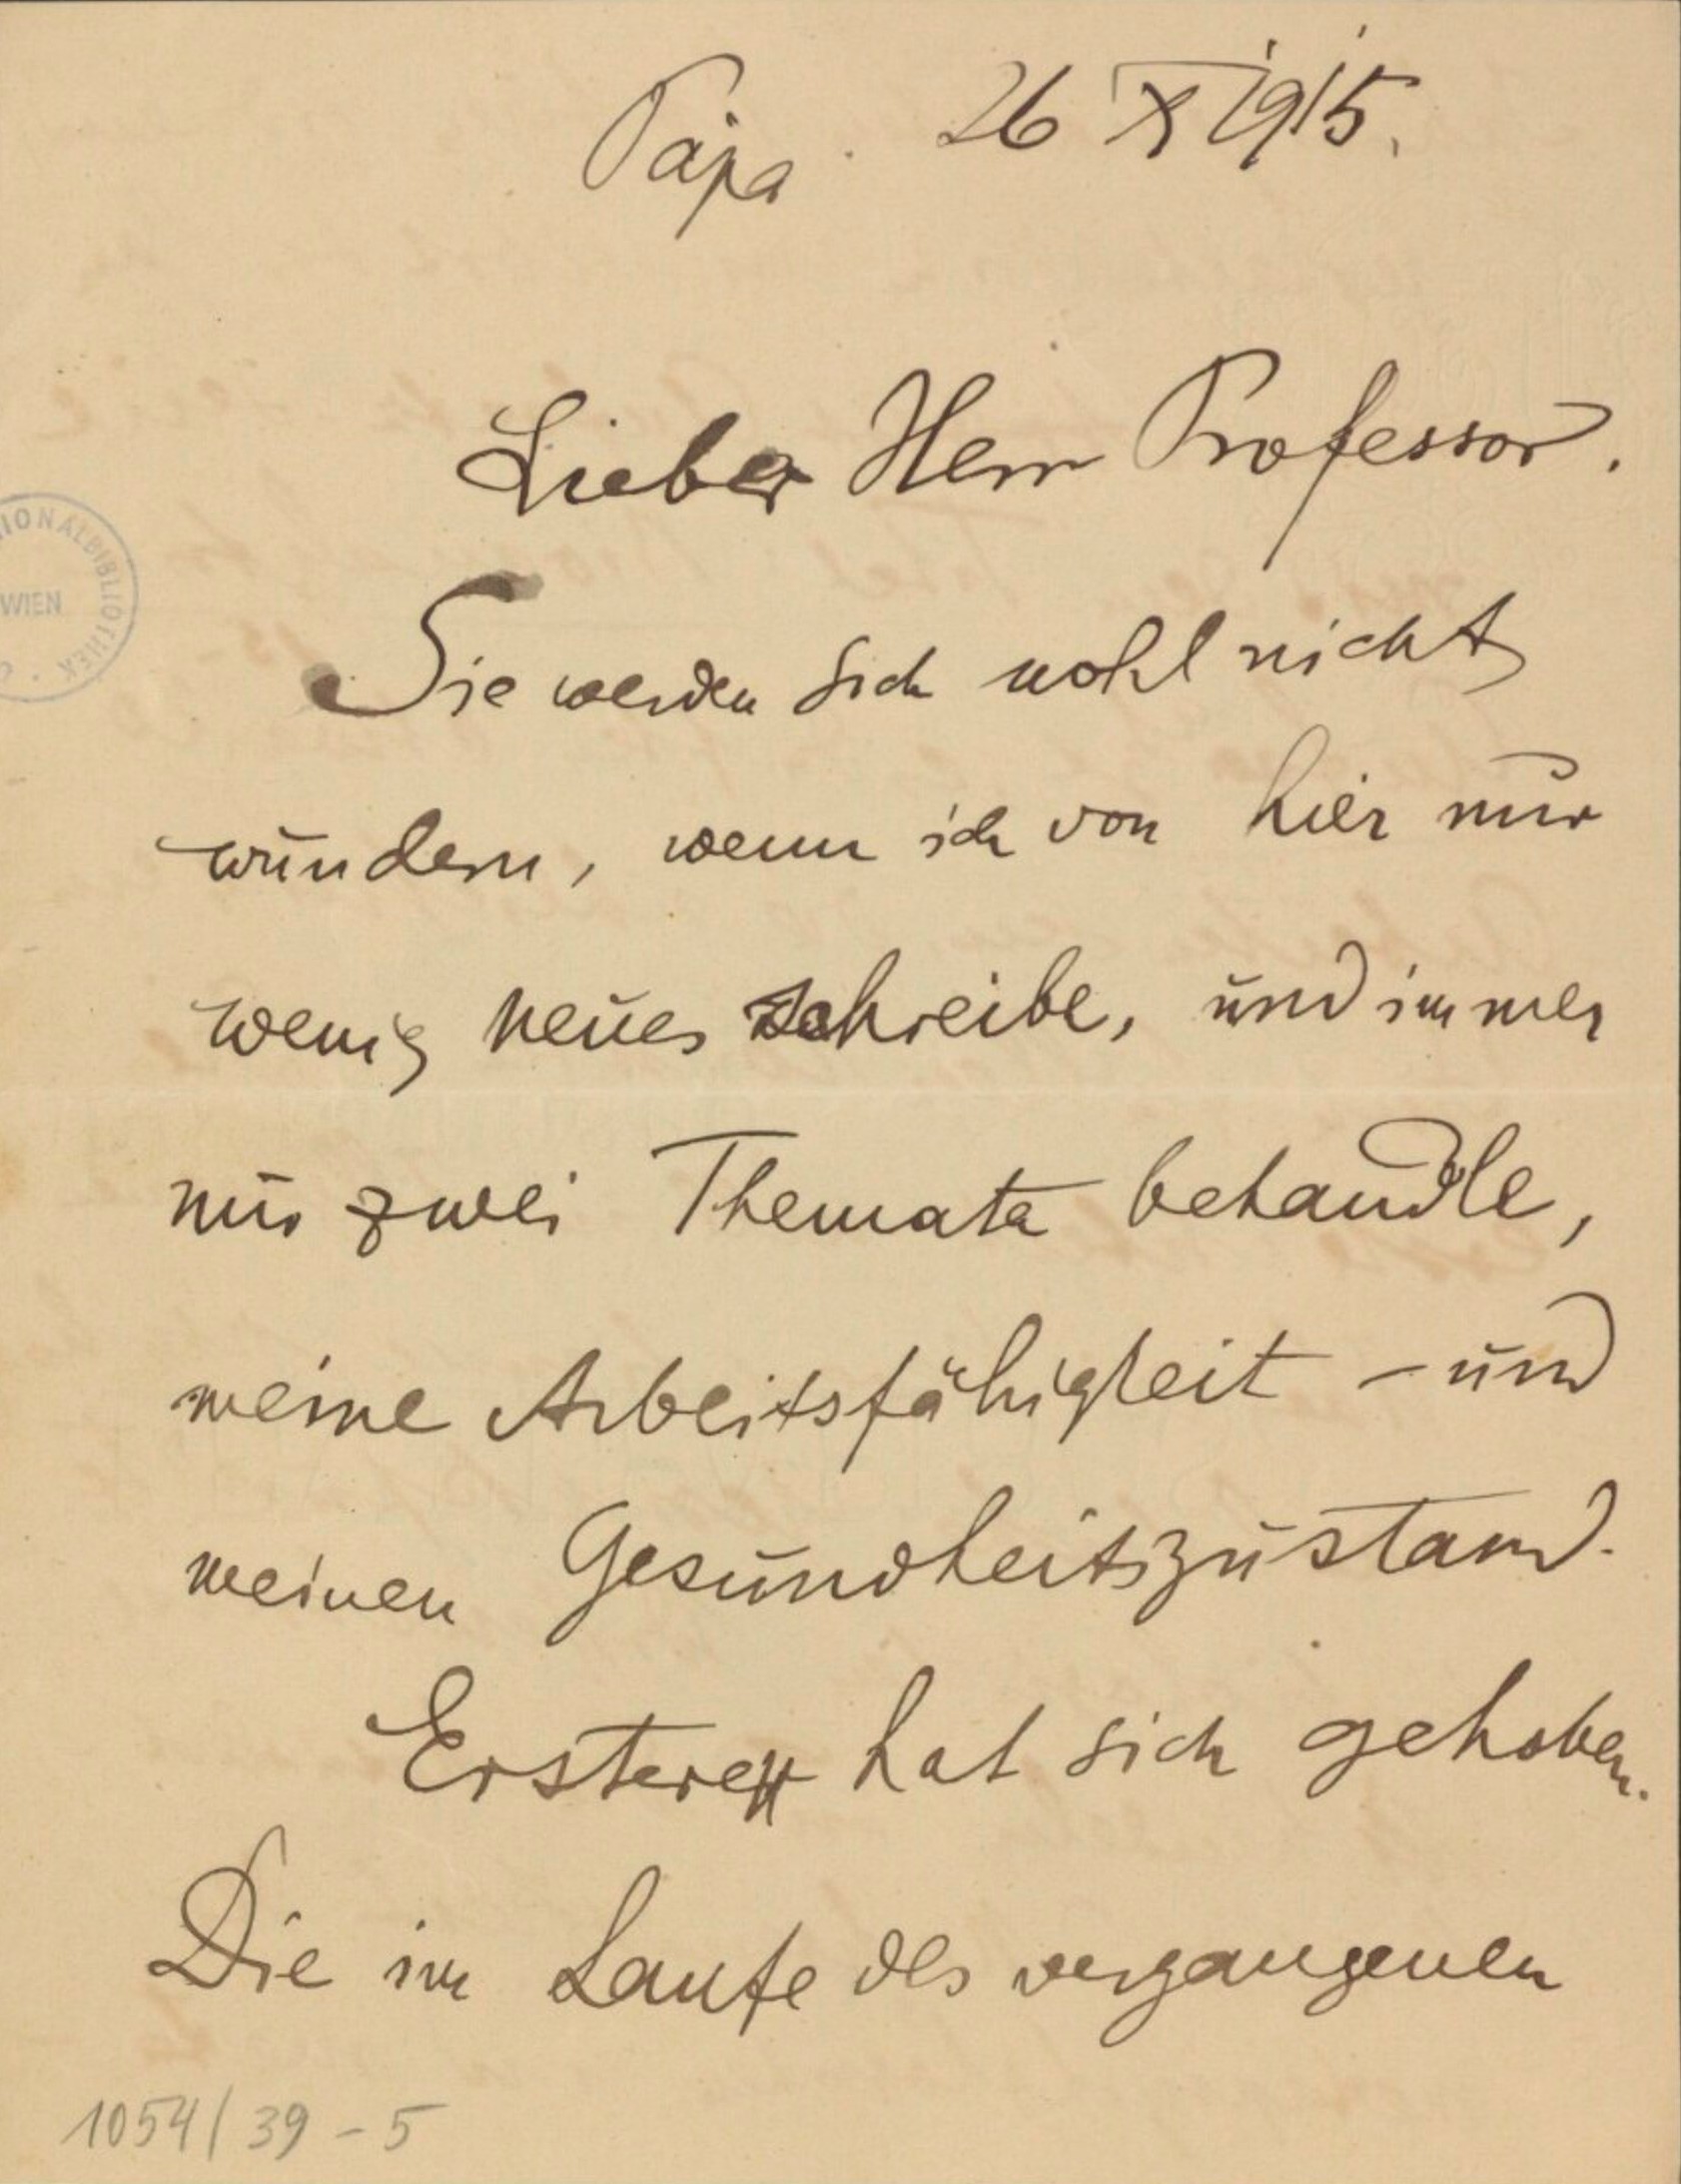 Pápa. 26 X 1915.
Lieber Herr Professor.
Sie werden sich wohl nicht
wundern, wenn ich von hier nur
wenig neues schreibe, und immer
nur zwei Themata behandle,
meine Arbeitsfähigkeit – und
meinen Gesundheitszustand.
Erstere hat sich gehoben.
Die im Laufe des vergangenen
IONALBIBLIOTHEK
WIEN
1054/39-5